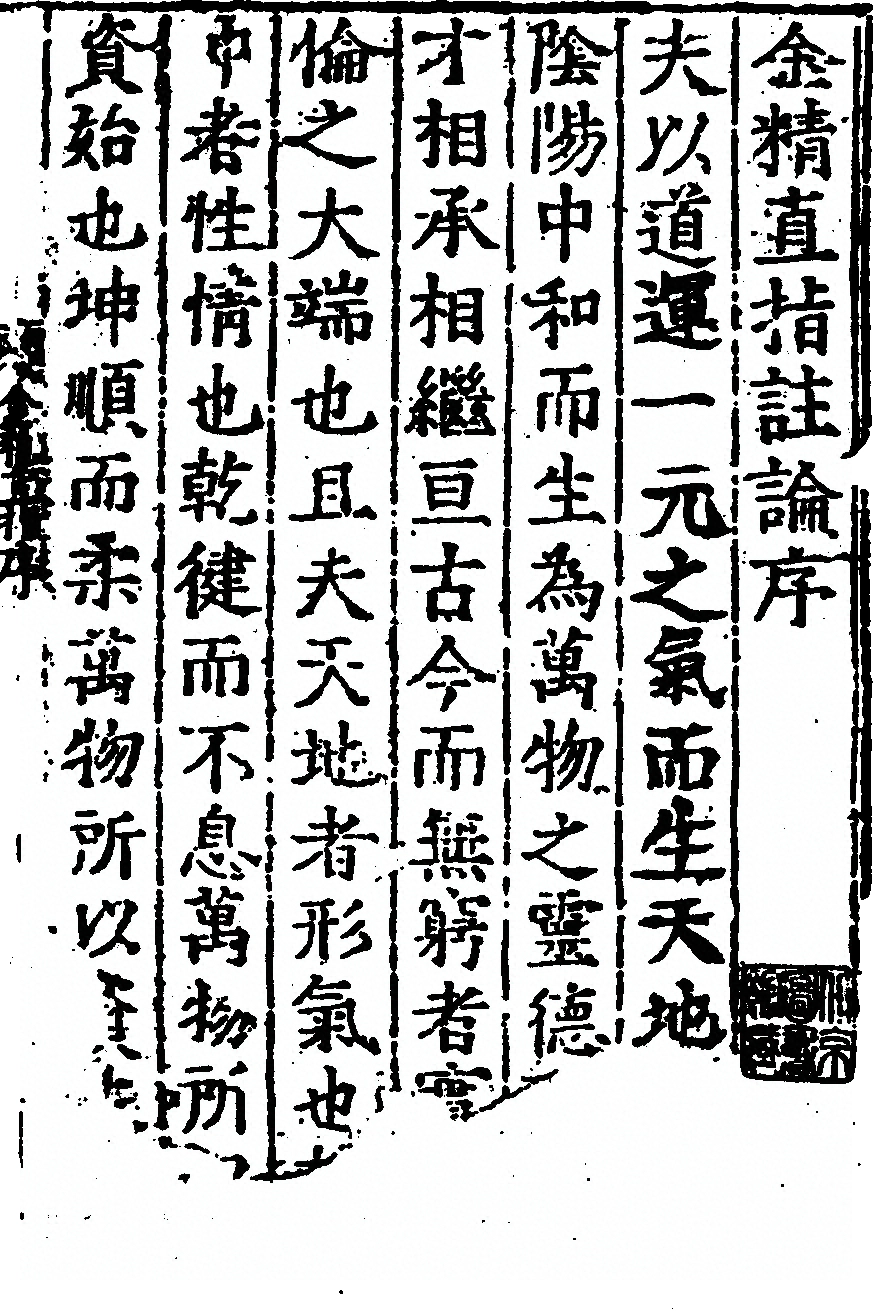 金精直指註論序
夫以道運一元之氣而生天地
陰陽中和而生為萬物之靈德
才相承相繼亘古今而無窮者實
倫之大端也且夫天地者形氣也
者性情也乾徤而不息萬物所
資始也坤順而柔萬物所以